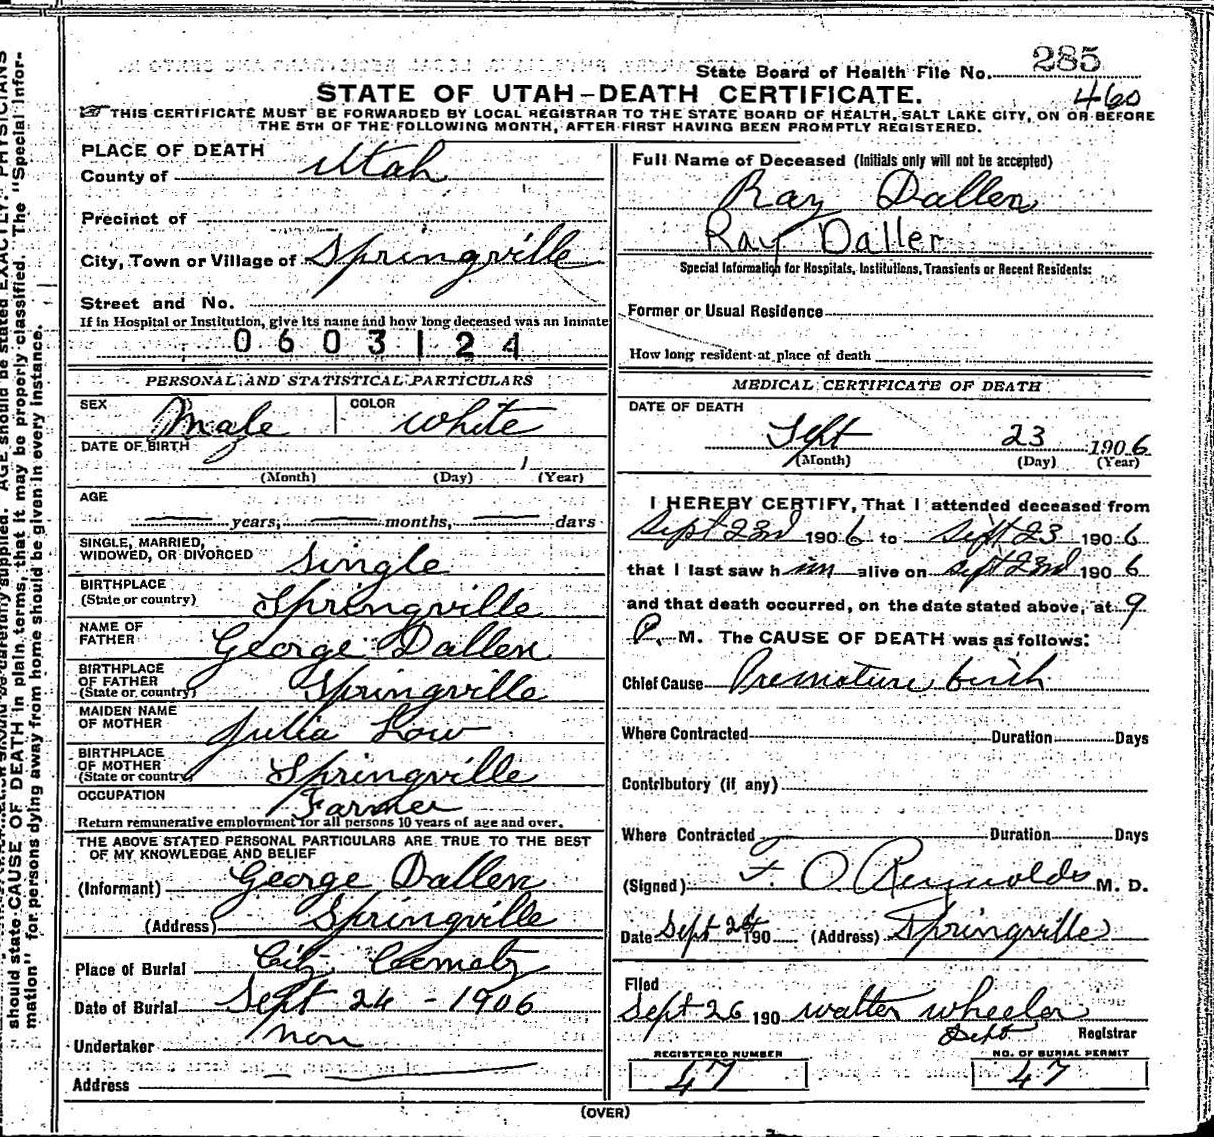 285
State Board of Health File No.
460
STATE OF UTAH–DEATH CERTIFICATE.
THIS CERTIFICATE MUST BE FORWARDED BY LOCAL REGISTRAR TO THE STATE BOARD OF HEALTH, SALT LAKE CITY, ON OR BEFORE
THE 5TH OF THE FOLLOWING MONTH, AFTER FIRST HAVING BEEN PROMPTLY REGISTERED.
PLACE OF DEATH
County of Utah
Precinct of
City, Town or Village of Springville
Street and No.
If in Hospital or Institution, give its name and how long deceased was an inmate
0603124
PERSONAL AND STATISTICAL PARTICULARS
SEX Male COLOR White
DATE OF BIRTH
(Month) (Day) (Year)
AGE
years, months, days
SINGLE, MARRIED,
WIDOWED, OR DIVORCED Single
BIRTHPLACE
(State or country) Springville
NAME OF
FATHER George Dallen
BIRTHPLACE
OF FATHER
(State or country) Springville
MAIDEN NAME
OF MOTHER Julia Low
BIRTHPLACE
OF MOTHER
(State or country) Springville
OCCUPATION Farmer
Return remunerative employment for all persons 10 years of age and over.
THE ABOVE STATED PERSONAL PARTICULARS ARE TRUE TO THE BEST
OF MY KNOWLEDGE AND BELIEF
(Informant) George Dallen
(Address) Springville
Place of Burial City
Date of Burial Sept 24 - 1906
Undertaker non
Address
Full Name of Deceased (Initials only will not be accepted)
Ray Dallen
Ray Daller
Special Information for Hospitals, Institutions, Transients or Recent Residents:
Former or Usual Residence
How long resident at place of death
MEDICAL CERTIFICATE OF DEATH
DATE OF DEATH
Sept 23 1906
(Month) (Day) (Year)
I HEREBY CERTIFY, That I attended deceased from
Sept 23rd 1906 to Sept 23 1906
that I last saw him alive on Sept 23rd 1906
and that death occurred, on the date stated above, at 9
P. M. The CAUSE OF DEATH was as follows:
Chief Cause Premature birth
Where Contracted Duration Days
Contributory (if any)
Where Contracted Duration Days
(Signed) F. O Reynolds M. D.
Date Sept 190 (Address) Springville
Filed
Sept 26 190 Walter Wheeler
Dept Registrar
REGISTERED NUMBER
47
NO. OF BURIAL PERMIT
47
(OVER)
should state CAUSE OF DEATH in plain terms, that it may be properly classified. The "Special Infor-
mation" for persons dying away from home should be given in every instance.